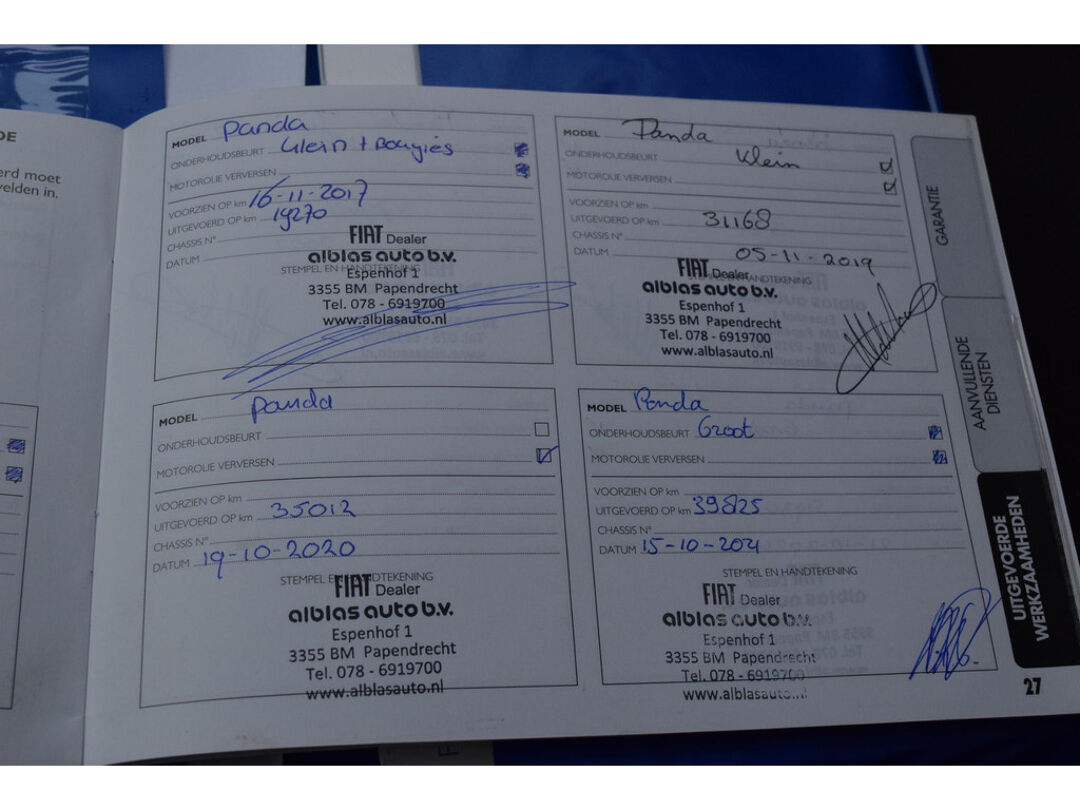 DE
erd moet
velden in.
MODEL Panda
ONDERHOUDSBEURT Klein + Bougies
MOTOROLIE VERVERSEN
VOORZIEN OP km 16-11-2017
UITGEVOERD OP km 19270
CHASSIS N°
DATUM
STEMPEL EN HANDTEKENING
FIAT Dealer
alblas auto b.v.
Espenhof 1
3355 BM Papendrecht
Tel. 078 - 6919700
www.alblasauto.nl
MODEL Panda
ONDERHOUDSBEURT Klein
MOTOROLIE VERVERSEN
VOORZIEN OP km
UITGEVOERD OP km 31168
CHASSIS N°
DATUM 05-11-2019
STEMPEL EN HANDTEKENING
FIAT Dealer
alblas auto b.v.
Espenhof 1
3355 BM Papendrecht
Tel. 078 - 6919700
www.alblasauto.nl
MODEL Panda
ONDERHOUDSBEURT
MOTOROLIE VERVERSEN
VOORZIEN OP km
UITGEVOERD OP km 35012
CHASSIS N°
DATUM 19-10-2020
STEMPEL EN HANDTEKENING
FIAT Dealer
alblas auto b.v.
Espenhof 1
3355 BM Papendrecht
Tel. 078 - 6919700
www.alblasauto.nl
MODEL Panda
ONDERHOUDSBEURT Groot
MOTOROLIE VERVERSEN
VOORZIEN OP km
UITGEVOERD OP km 39825
CHASSIS N°
DATUM 15-10-2021
STEMPEL EN HANDTEKENING
FIAT Dealer
alblas auto b.v.
Espenhof 1
3355 BM Papendrecht
Tel. 078 - 6919700
www.alblasauto.nl
GARANTIE
AANVULLENDE
DIENSTEN
UITGEVOERDE
WERKZAAMHEDEN
27